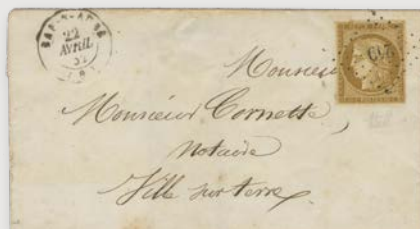 BAR-S-AUBE
22
AVRIL
Monsieur
Monsieur Cornette,
Notaire
Ville sur terre